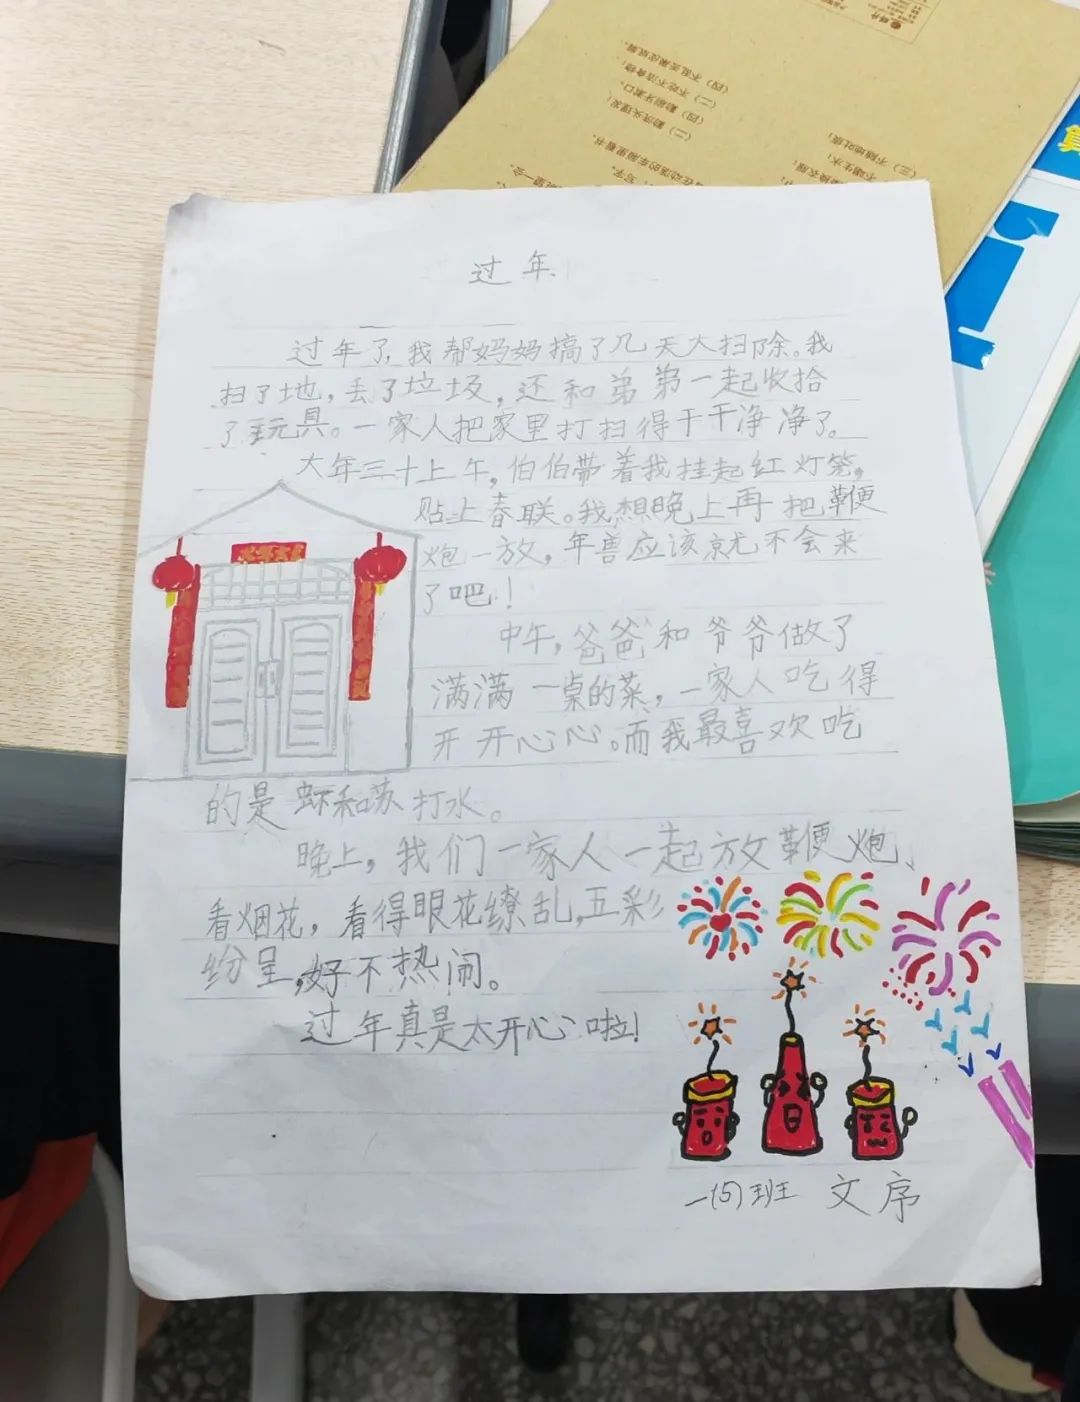 过年
过年了,我帮妈妈搞了几天大扫除。我
扫了地,丢了垃圾,还和弟弟一起收拾
了玩具。一家人把家里打扫得干干净净了。
大年三十上午,伯伯带着我挂起红灯笼,
贴上春联。我想晚上再把鞭
炮一放,年兽应该就不会来
了吧!
中午,爸爸和爷爷做了
满满一桌的菜,一家人吃得
开开心心。而我最喜欢吃
的是虾和苏打水。
晚上,我们一家人一起放鞭炮、
看烟花,看得眼花缭乱,五彩
纷呈,好不热闹。
过年真是太开心啦!
一(5)班 文序
(四)不乱丢果皮纸屑。
(二)不吃不洁食物;
(四)勤刷牙漱口。
(二)勤洗头理发;
(三)不随地吐痰;
不喝生水;
换衣服;